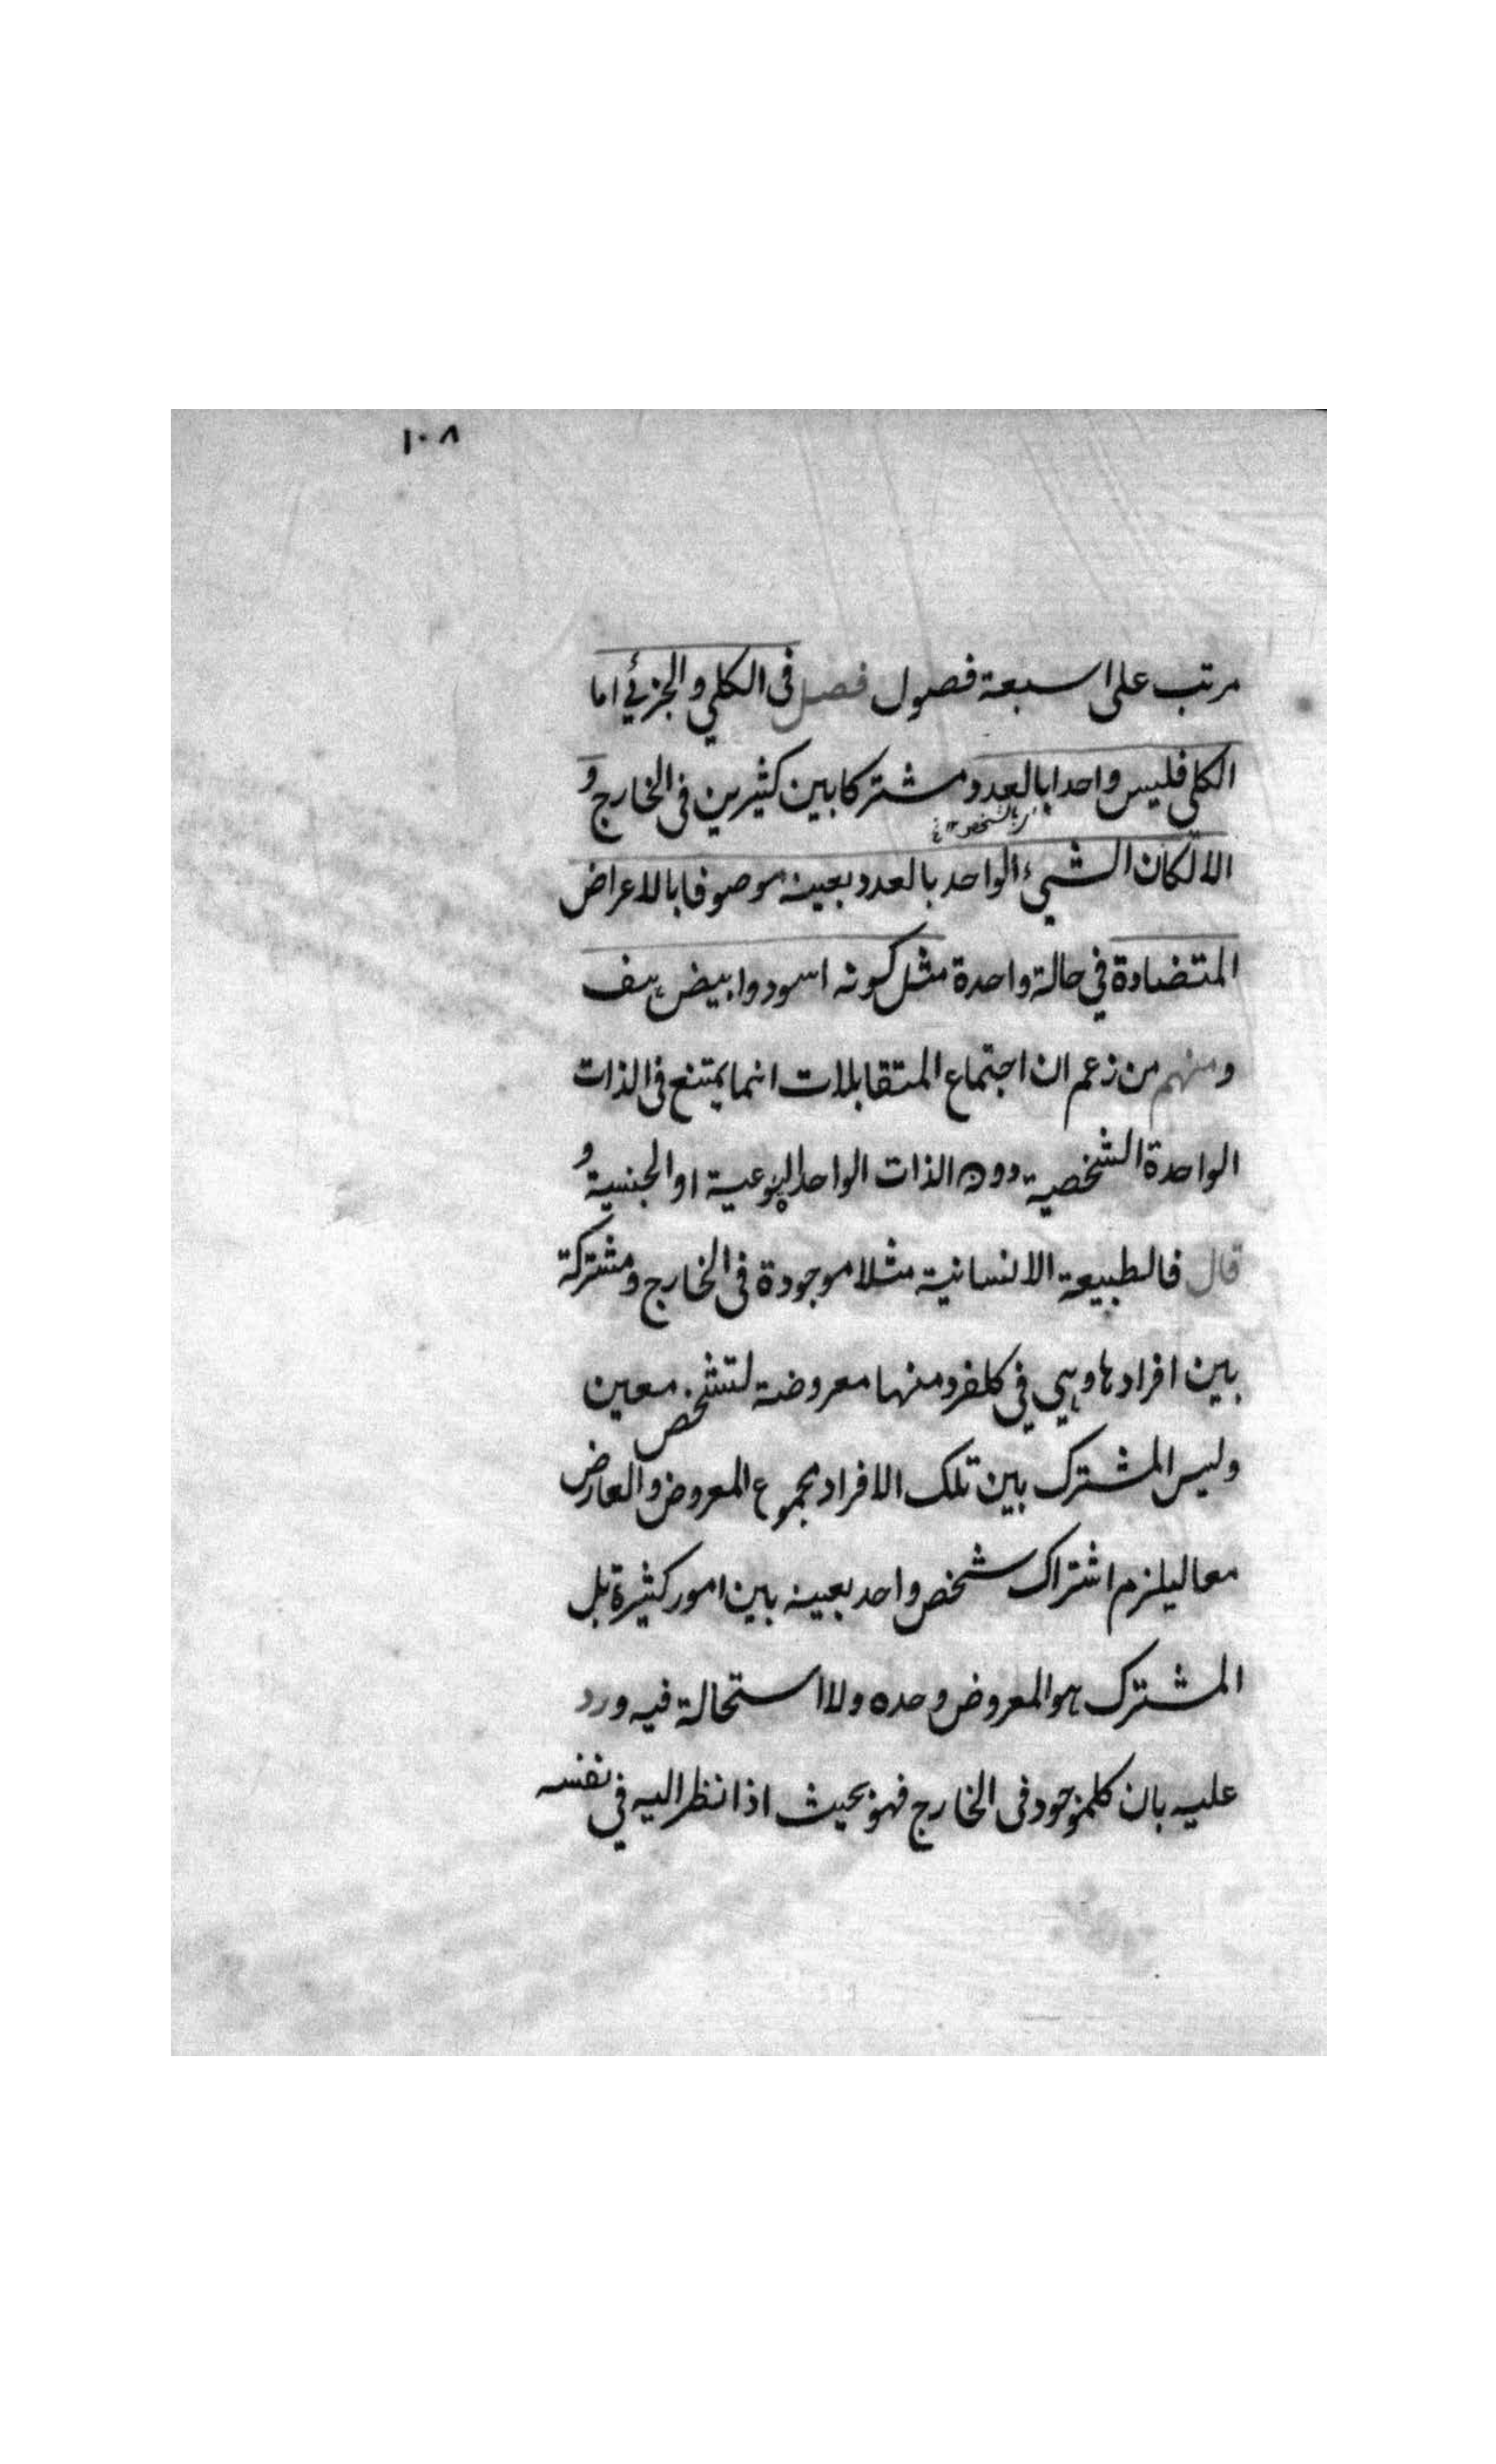 ١٠٨
مرتب على سبعة فصول فصل فى الكلي والجزئي اما
الكلي فليس واحدا بالعدد مشتركا بين كثيرين فى الخارج و
بالشخص
الا لكان الشيء الواحد بالعدد بعينه موصوفا بالاعراض
المتضادة في حالة واحدة مثل كونه اسود وابيض هف
ومنهم من زعم ان اجتماع المتقابلات انما يمتنع فى الذات
الواحدة الشخصية دون الذات الواحدة النوعية او الجنسية و
قال فالطبيعة الانسانية مثلا موجودة فى الخارج ومشتركة
بين افرادها وهي في كلفرد منها معروضة لتشخص معين
وليس المشترك بين تلك الافراد مجموع المعروض والعارض
معا ليلزم اشتراك شخص واحد بعينه بين امور كثيرة بل
المشترك هو المعروض وحده ولا استحالة فيه ورد
عليه بان كلموجود فى الخارج فهو بحيث اذا نظر اليه في نفسه